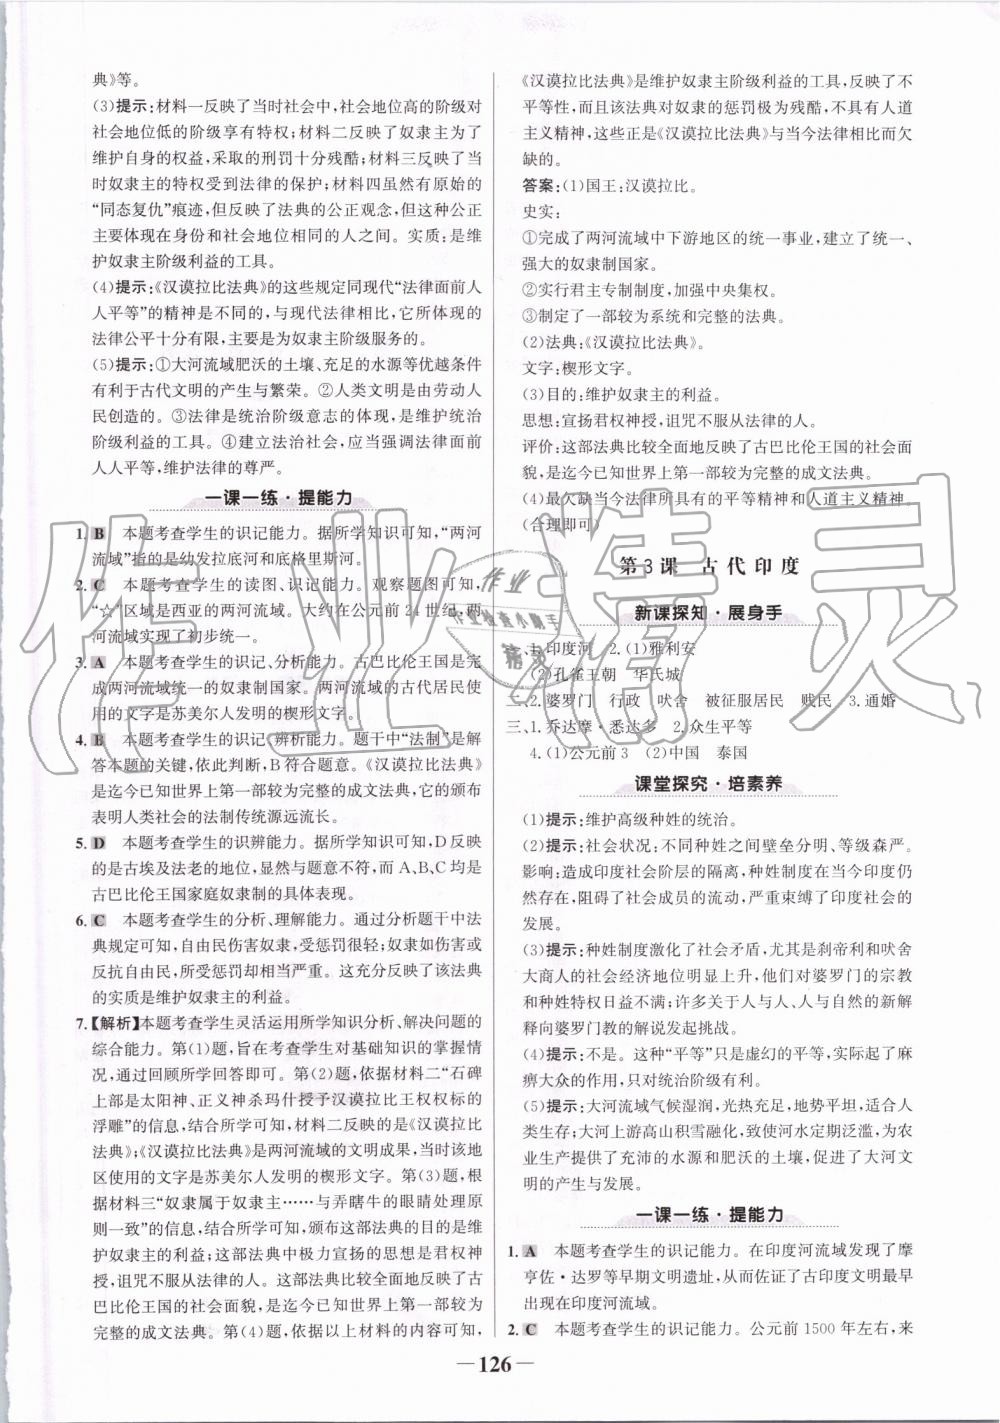 典》等。
(3)提示:材料一反映了当时社会中,社会地位高的阶级对
社会地位低的阶级享有特权;材料二反映了奴隶主为了
维护自身的权益,采取的刑罚十分残酷;材料三反映了当
时奴隶主的特权受到法律的保护;材料四虽然有原始的
“同态复仇”痕迹,但反映了法典的公正观念,但这种公正
主要体现在身份和社会地位相同的人之间。实质:是维
护奴隶主阶级利益的工具。
(4)提示:《汉谟拉比法典》的这些规定同现代“法律面前人
人平等”的精神是不同的,与现代法律相比,它所体现的
法律公平十分有限,主要是为奴隶主阶级服务的。
(5)提示:①大河流域肥沃的土壤、充足的水源等优越条件
有利于古代文明的产生与繁荣。②人类文明是由劳动人
民创造的。③法律是统治阶级意志的体现,是维护统治
阶级利益的工具。④建立法治社会,应当强调法律面前
人人平等,维护法律的尊严。
一课一练·提能力
1. B 本题考查学生的识记能力。据所学知识可知,“两河
流域”指的是幼发拉底河和底格里斯河。
2. C 本题考查学生的读图、识记能力。观察题图可知,
“☆”区域是西亚的两河流域。大约在公元前 24 世纪,两
河流域实现了初步统一。
3. A 本题考查学生的识记、分析能力。古巴比伦王国是完
成两河流域统一的奴隶制国家。两河流域的古代居民使
用的文字是苏美尔人发明的楔形文字。
4. B 本题考查学生的识记、辨析能力。题干中“法制”是解
答本题的关键,依此判断,B 符合题意。《汉谟拉比法典》
是迄今已知世界上第一部较为完整的成文法典,它的颁布
表明人类社会的法制传统源远流长。
5. D 本题考查学生的识辨能力。据所学知识可知,D 反映
的是古埃及法老的地位,显然与题意不符,而 A、B、C 均是
古巴比伦王国家庭奴隶制的具体表现。
6. C 本题考查学生的分析、理解能力。通过分析题干中法
典规定可知,自由民伤害奴隶,受惩罚很轻;奴隶如伤害或
反抗自由民,所受惩罚却相当严重。这充分反映了该法典
的实质是维护奴隶主的利益。
7.【解析】本题考查学生灵活运用所学知识分析、解决问题的
综合能力。第(1)题,旨在考查学生对基础知识的掌握情
况,通过回顾所学回答即可。第(2)题,依据材料二“石碑
上部是太阳神、正义神杀玛什授予汉谟拉比王权权标的
浮雕”的信息,结合所学可知,材料二反映的是《汉谟拉比
法典》;《汉谟拉比法典》是两河流域的文明成果,当时该地
区使用的文字是苏美尔人发明的楔形文字。第(3)题,根
据材料三“奴隶属于奴隶主……与弄瞎牛的眼睛处理原
则一致”的信息,结合所学可知,颁布这部法典的目的是维
护奴隶主的利益;这部法典中极力宣扬的思想是君权神
授,诅咒不服从法律的人。这部法典比较全面地反映了古
巴比伦王国的社会面貌,是迄今已知世界上第一部较为
完整的成文法典。第(4)题,依据以上材料的内容可知,
《汉谟拉比法典》是维护奴隶主阶级利益的工具,反映了不
平等性,而且该法典对奴隶的惩罚极为残酷,不具有人道
主义精神,这些正是《汉谟拉比法典》与当今法律相比而欠
缺的。
答案:(1)国王:汉谟拉比。
史实:
①完成了两河流域中下游地区的统一事业,建立了统一、
强大的奴隶制国家。
②实行君主专制制度,加强中央集权。
③制定了一部较为系统和完整的法典。
(2)法典:《汉谟拉比法典》。
文字:楔形文字。
(3)目的:维护奴隶主的利益。
思想:宣扬君权神授,诅咒不服从法律的人。
评价:这部法典比较全面地反映了古巴比伦王国的社会面
貌,是迄今已知世界上第一部较为完整的成文法典。
(4)最欠缺当今法律所具有的平等精神和人道主义精神。
(合理即可)
第 3 课 古代印度
新课探知·展身手
一、1.印度河 2.(1)雅利安
(2)孔雀王朝 华氏城
二、2.婆罗门 行政 吠舍 被征服居民 贱民 3.通婚
三、1.乔达摩·悉达多 2.众生平等
4.(1)公元前 3 (2)中国 泰国
课堂探究·培素养
(1)提示:维护高级种姓的统治。
(2)提示:社会状况:不同种姓之间壁垒分明、等级森严。
影响:造成印度社会阶层的隔离,种姓制度在当今印度仍
然存在,阻碍了社会成员的流动,严重束缚了印度社会的
发展。
(3)提示:种姓制度激化了社会矛盾,尤其是刹帝利和吠舍
大商人的社会经济地位明显上升,他们对婆罗门的宗教
和种姓特权日益不满;许多关于人与人、人与自然的新解
释向婆罗门教的解说发起挑战。
(4)提示:不是。这种“平等”只是虚幻的平等,起到了麻
痹大众的作用,只对统治阶级有利。
(5)提示:大河流域气候湿润,光热充足,地势平坦,适合人
类生存;大河上游高山积雪融化,致使河水定期泛滥,为农
业生产提供了充沛的水源和肥沃的土壤,促进了大河文
明的产生与发展。
一课一练·提能力
1. A 本题考查学生的识记能力。在印度河流域发现了摩
亨佐·达罗等早期文明遗址,从而佐证了古印度文明最早
出现在印度河流域。
2. C 本题考查学生的识记能力。公元前 1500 年左右,来
— 126 —
作业精灵
作业
作业检查小助手
精灵